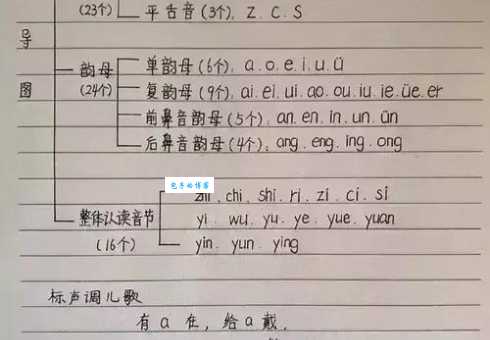 (23个) 平舌音(3个), z. c. s
导 韵母 单韵母(6个), a. o. e. i. u. ü
图 (24个) 复韵母(9个), ai. ei. ui. ao. ou. iu. ie. üe. er
前鼻音韵母(5个), an. en. in. un. ün
后鼻音韵母(4个), ang. eng. ing. ong
zhi. chi. shi. ri. zi. ci. si
整体认读音节 yi. wu. yu. ye. yue. yuan
(16个) yin. yun. ying
标声调儿歌
有a在,给a戴,